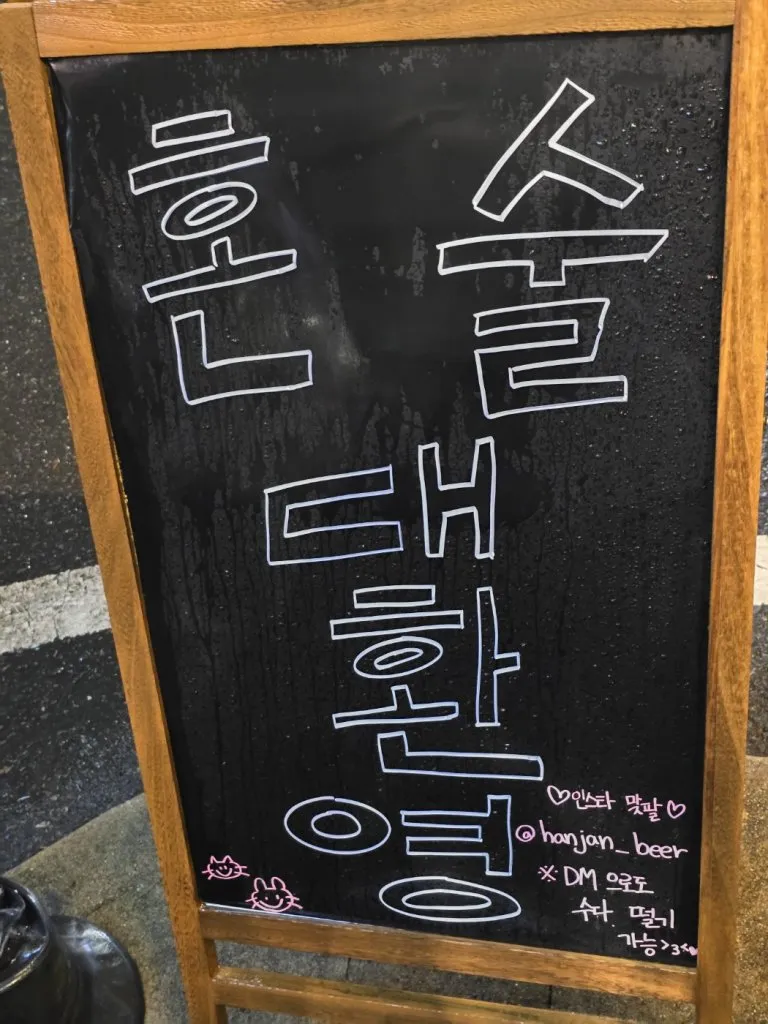 혼 술
대
환
영
♡인스타 맞팔♡
@hanjan_beer
※ DM 으로도
수다 떨기
가능>3<